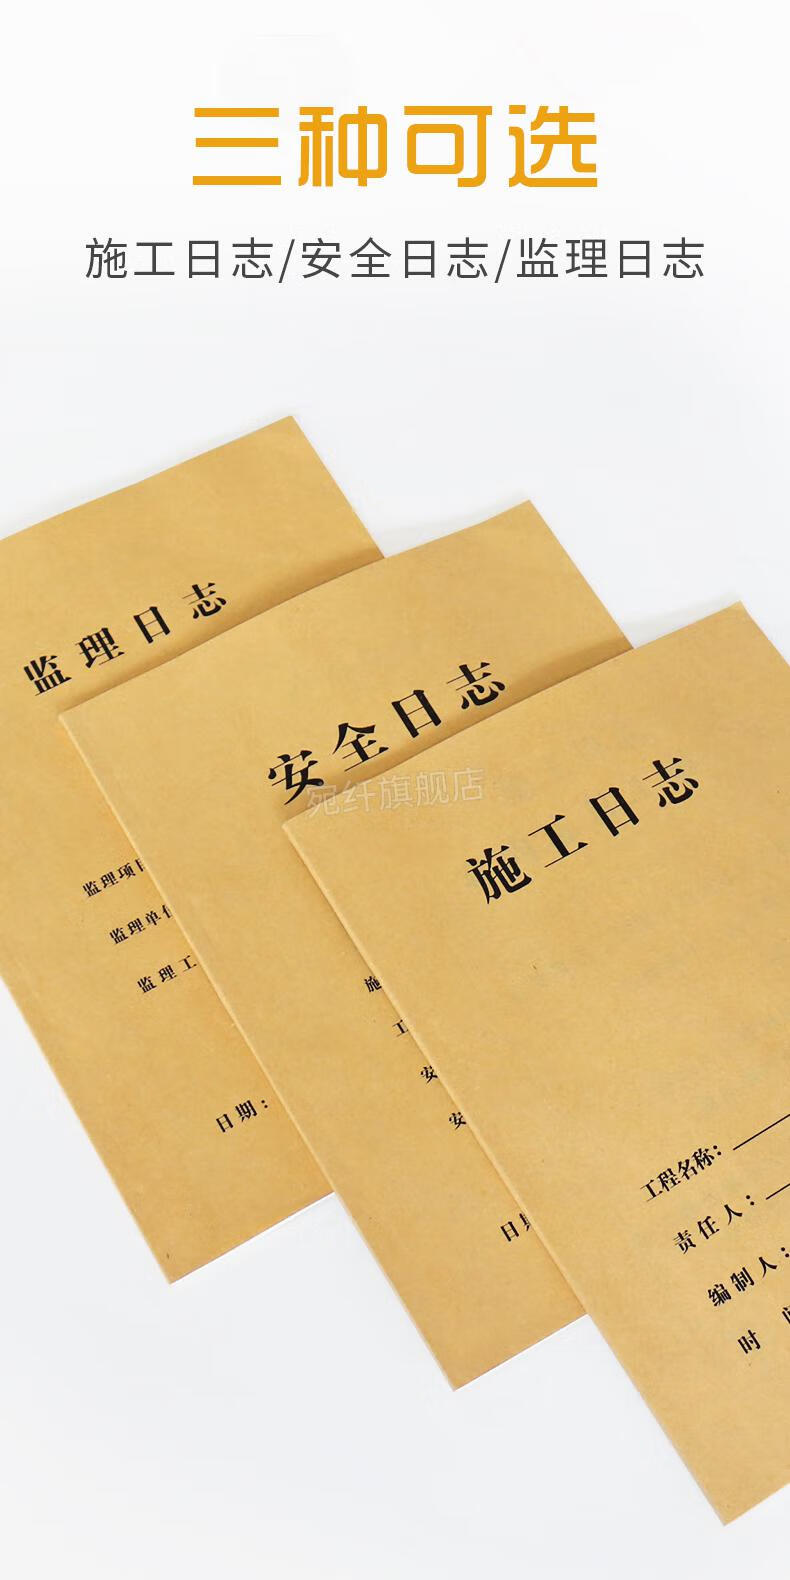 三种可选
施工日志/安全日志/监理日志
监理日志
监理项目
监理单
监理工
日期：
安全日志
施
工
安
安
日期
宛纤旗舰店
施工日志
工程名称：
责任人：
编制人：
时间